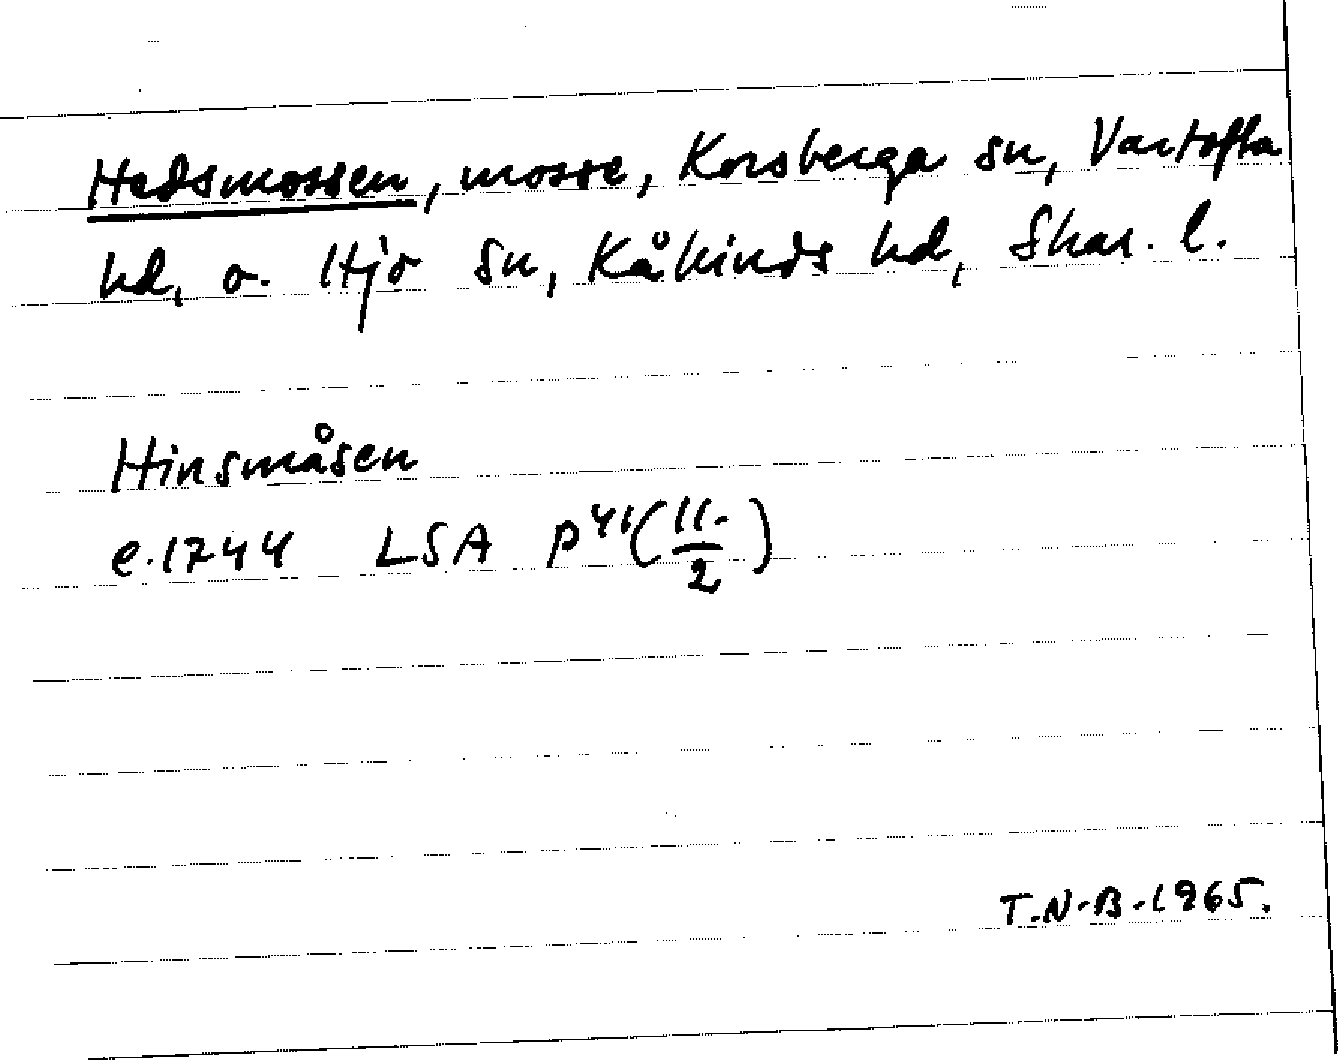 Hedsmossen, mosse, Korsberga sn, Vartofta
hd, o. Hjo sn, Kåkinds hd, Skar. l.
Hinsmåsen
e.1744 LSA P⁴¹(11./2)
T.N.B.1965.